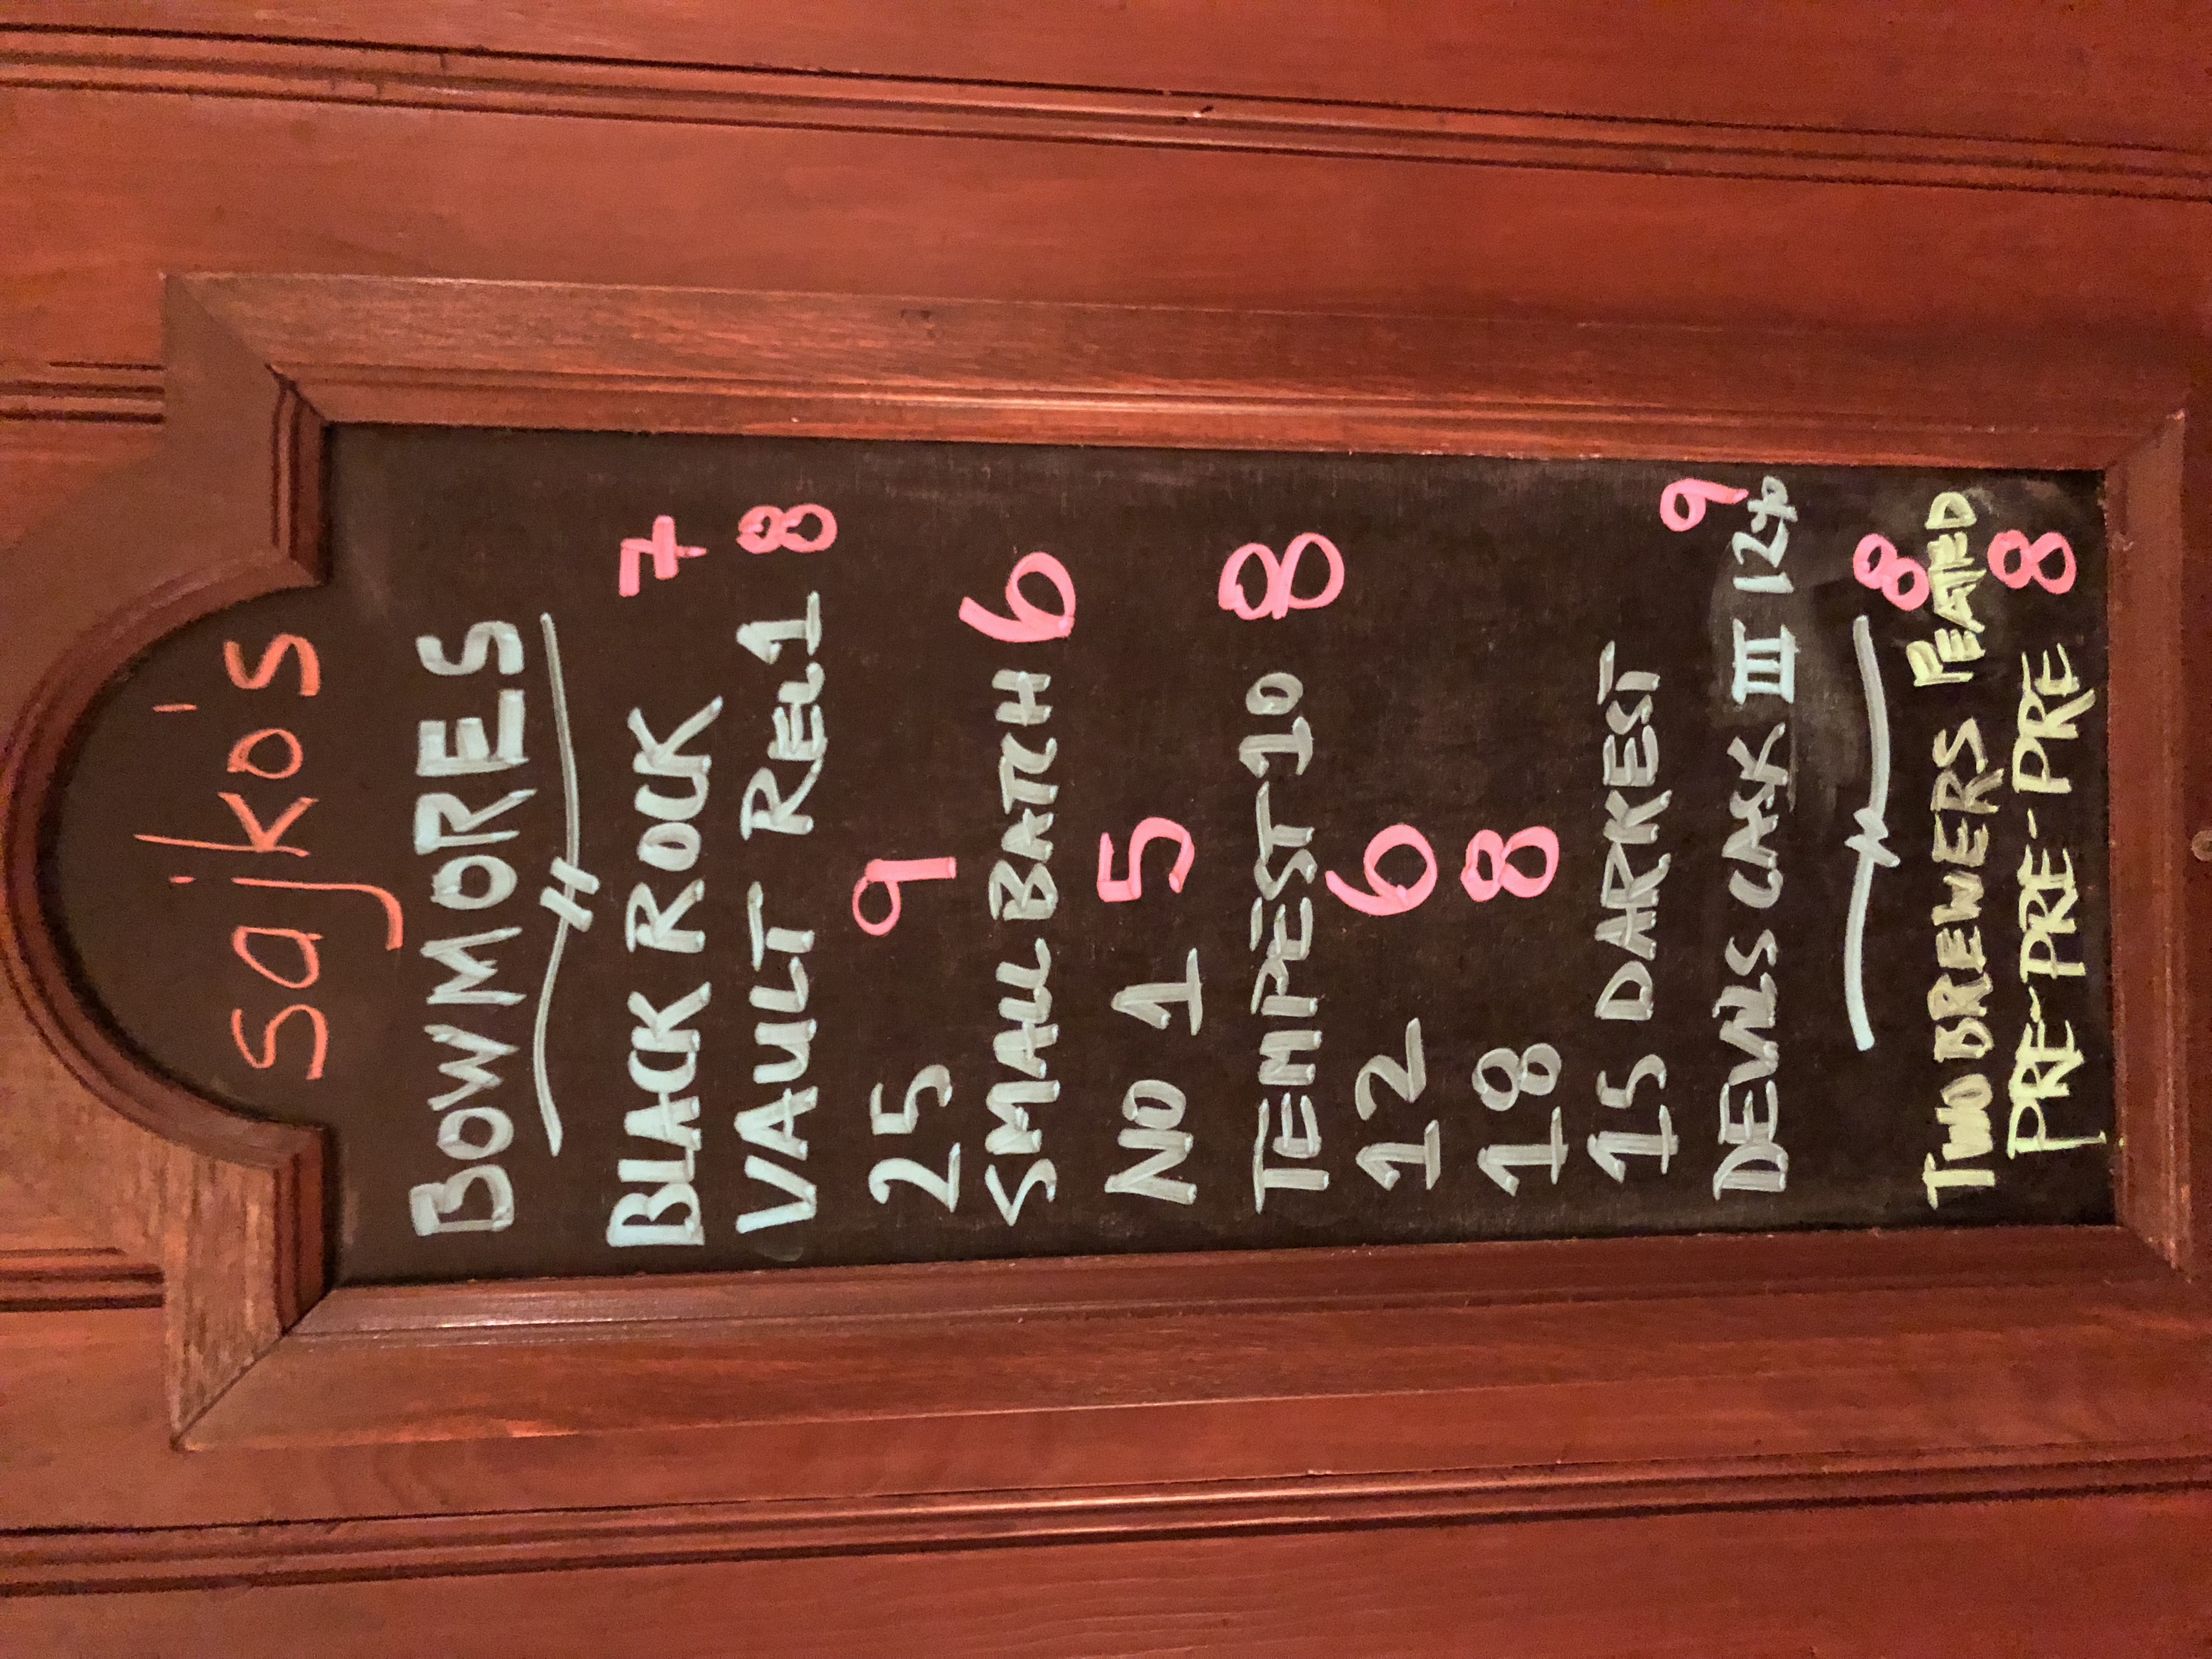 sajko's
BOWMORES
BLACK ROCK 7
VAULT REL1 8
25 9
SMALL BATCH 6
NO 1 5
TEMPEST 10 8
12 6
18 8
15 DARKEST
DEVILS CASK III 9
TWO BREWERS PEATED 8
PRE-PRE-PRE-PRE 8